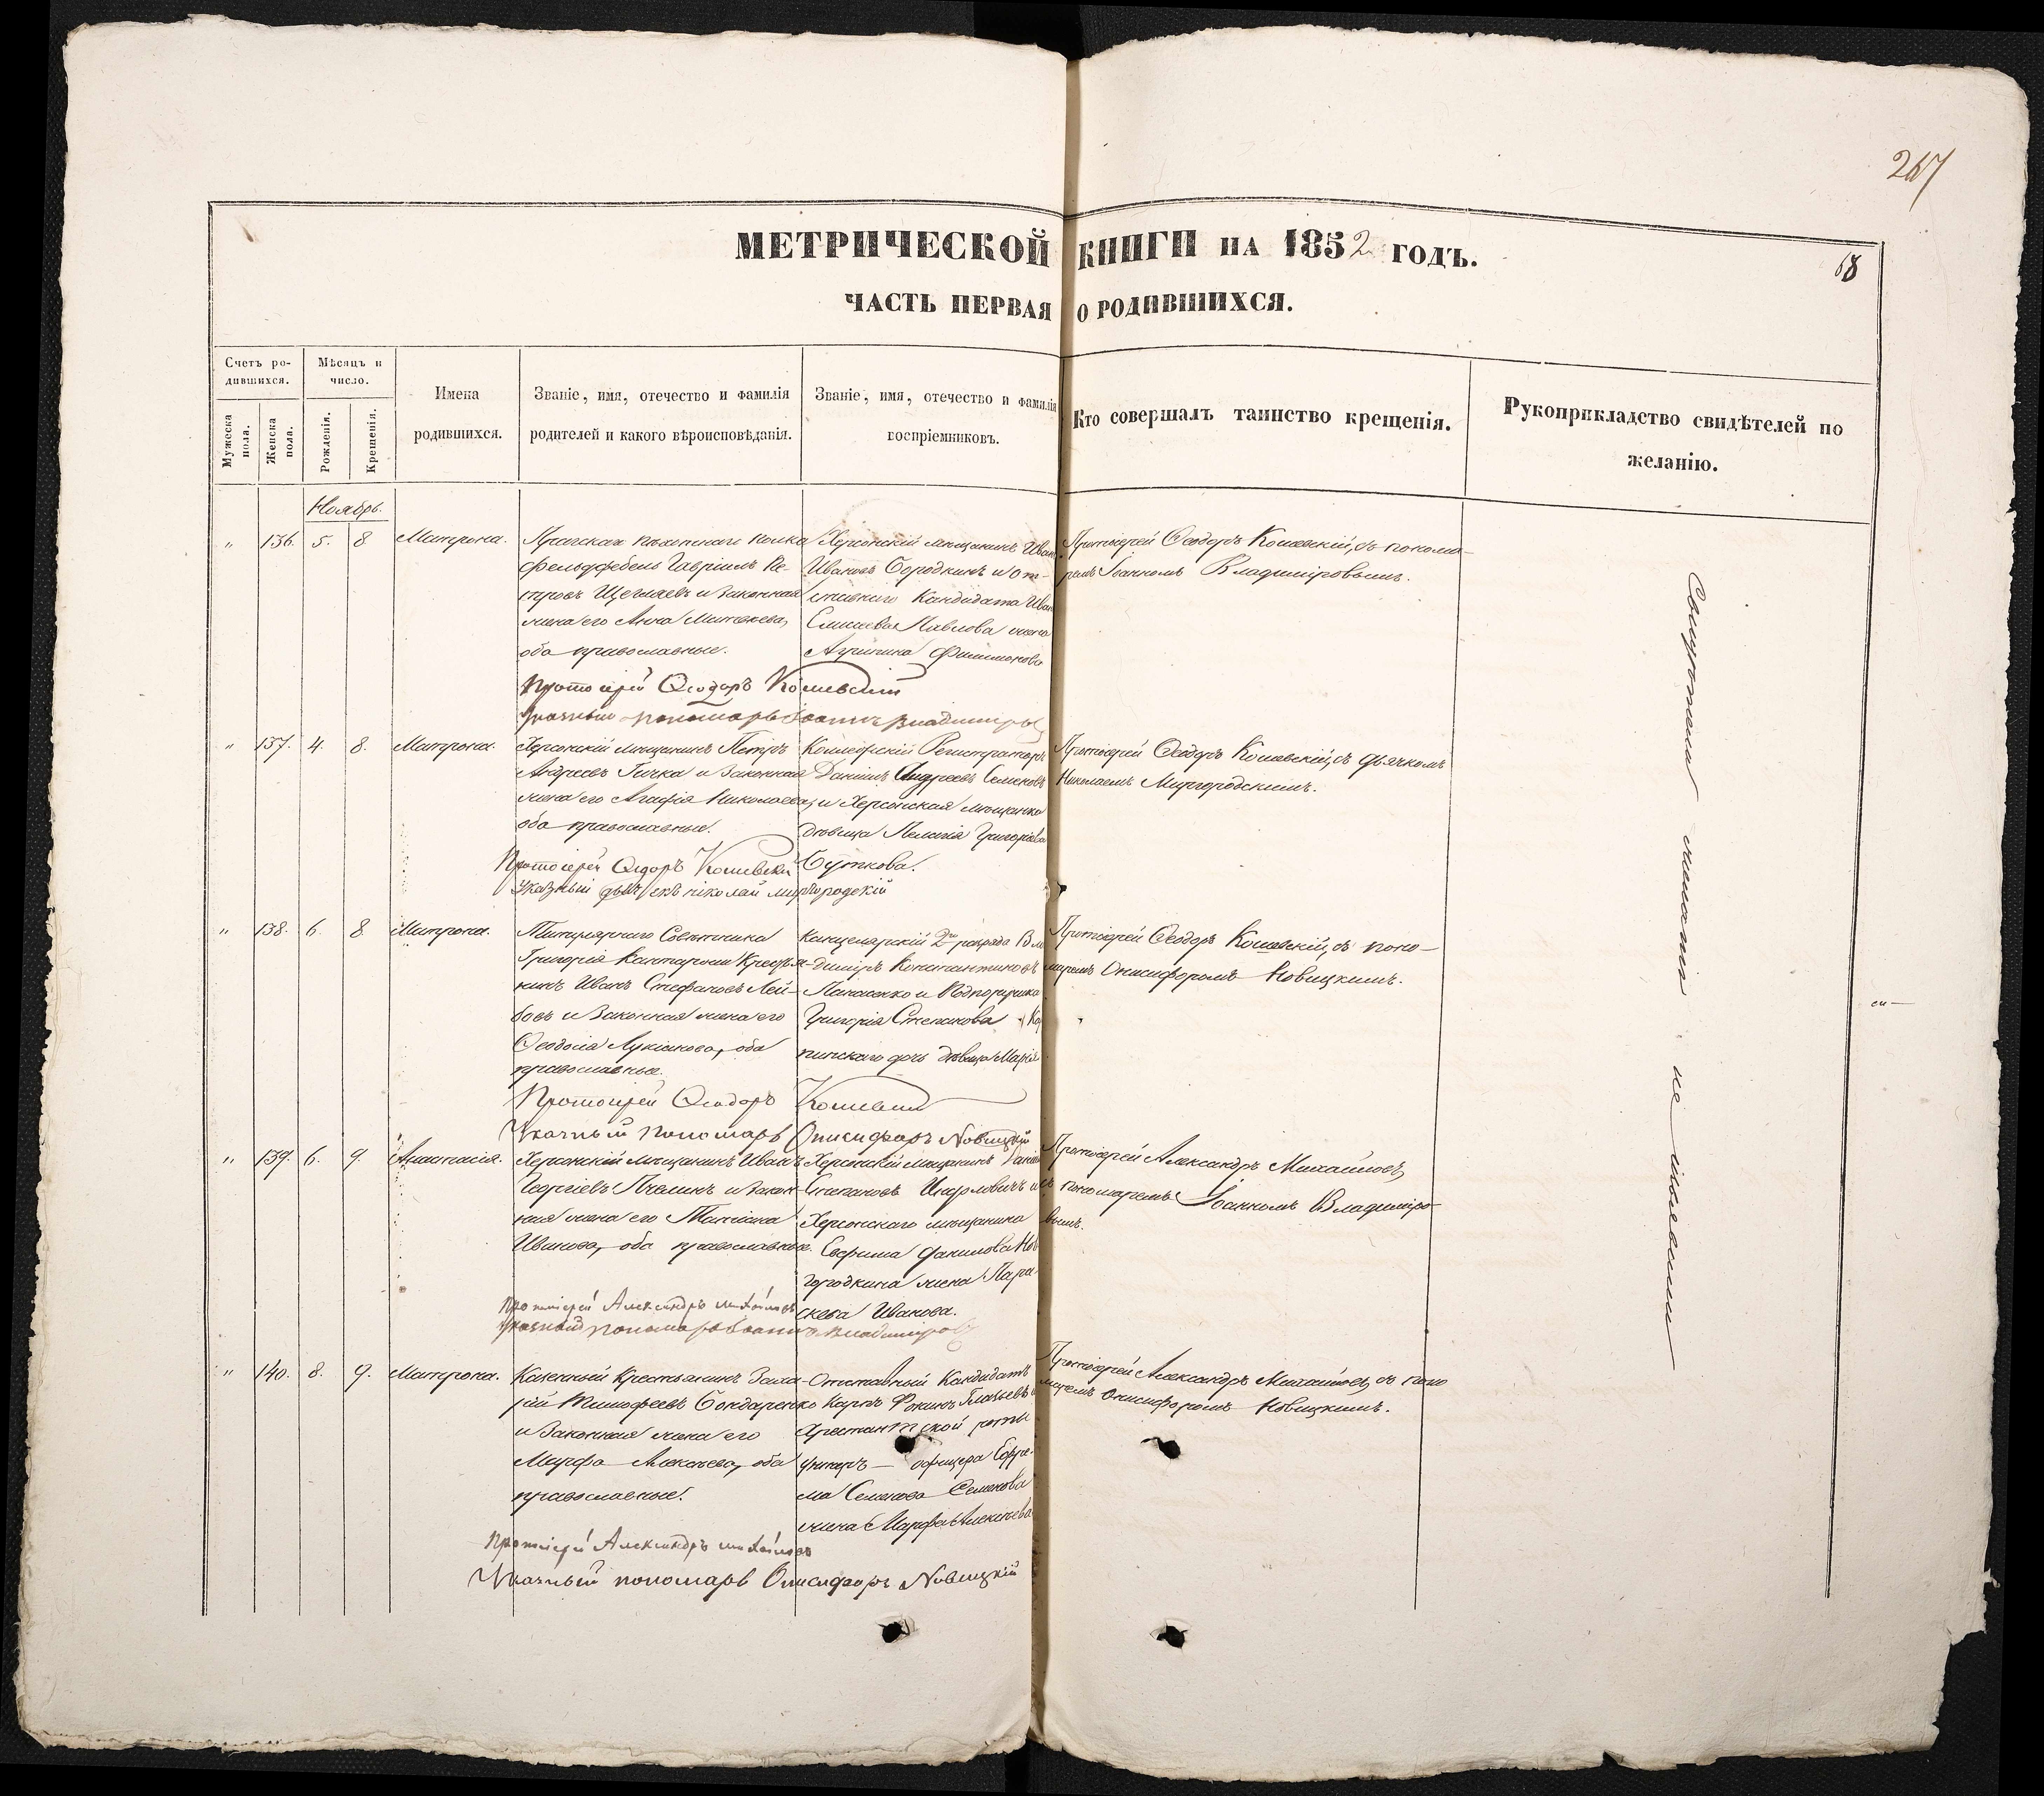 267
МЕТРИЧЕСКОЙ КНИГИ НА 1852 ГОДЪ.
68
ЧАСТЬ ПЕРВАЯ О РОДИВШИХСЯ.
Счетъ ро-
дившихся.
Мужеска
пола.
Женска
пола.
Мѣсяцъ и
число.
Рожденія.
Крещенія.
Имена
родившихся.
Званіе, имя, отечество и фамилія
родителей и какого вѣроисповѣданія.
Званіе, имя, отечество и фамилія
воспріемниковъ.
Кто совершалъ таинство крещенія.
Рукоприкладство свидѣтелей по
желанію.
Ноябрь.
" 136. 5. 8. Матрона.
Пражскаго пѣхотнаго полка
фельдфебель Гавріилъ Пе-
тровъ Щегляевъ и законная
жена его Анна Матвѣева,
оба православные.
Херсонскій мѣщанинъ Иванъ
Ивановъ Бородкинъ и от-
ставнаго Кандидата Ивана
Елисеева Павлова жена
Агрипина Филимонова
Протоіерей Ѳеодоръ Кошевскій, съ понома-
ремъ Іоанномъ Владиміровымъ.
Протоіерей Ѳеодоръ Кошевскій
Указный пономарь Іоаннъ Владиміровъ
" 137. 4. 8. Матрона.
Херсонскій мѣщанинъ Петръ
Андреевъ Гичка и законная
жена его Агафія Николаева,
оба православные.
Коллежскій Регистраторъ
Даніилъ Андреевъ Семеновъ
и Херсонская мѣщанка
дѣвица Пелагія Григоріева
Буткова.
Протоіерей Ѳеодоръ Кошевскій, съ дьячкомъ
Николаемъ Миргородскимъ.
Протоіерей Ѳеодоръ Кошевскій
Указный дьячекъ николай миргородскій
" 138. 6. 8. Матрона.
Титулярнаго Совѣтника
Григорія Кантарожи Крестья-
нинъ Иванъ Стефановъ Лей-
бовъ и законная жена его
Ѳеодосія Лукіанова, оба
православные.
Канцелярскій 2го разряда Вла-
диміръ Константиновъ
Панасенко и Подпоручика
Григорія Степанова Кар
пинскаго дочь дѣвица Марія
Протоіерей Ѳеодоръ Кошевскій, съ поно-
маремъ Онисифоромъ Новицкимъ.
Протоіерей Ѳеодоръ Кошевскій
Указный пономарь Онисифоръ Новицкій
" 139. 6. 9. Анастасія.
Херсонскій мѣщанинъ Иванъ
Георгіевъ Пчелинъ и закон-
ная жена его Татіана
Иванова, оба православные.
Херсонскій мѣщанинъ Даніилъ
Степановъ и
Херсонскаго мѣщанина
Евфима Данилова Нов
городкина жена Пара-
скева Иванова.
Протоіерей Александръ Михайловъ,
съ пономаремъ Іоанномъ Владиміро-
вымъ.
Протоіерей Александръ михайловъ
Указный пономарь Іоаннъ Владиміровъ
" 140. 8. 9. Матрона.
Казенный Крестьянинъ Заха-
рій Тимофеевъ Бондаренко
и законная жена его
Марфа Алексѣева, оба
православные.
Отставный Кандидатъ
Карпъ Фокинъ и
Арестантской роты
унтеръ — офицера Ефре-
ма Семенова Семенова
жена Марфа Алексѣева
Протоіерей Александръ Михайловъ, съ поно
маремъ Онисифоромъ Новицкимъ.
Протоіерей Александръ михайловъ
Указный пономарь Онисифоръ Новицкій
не